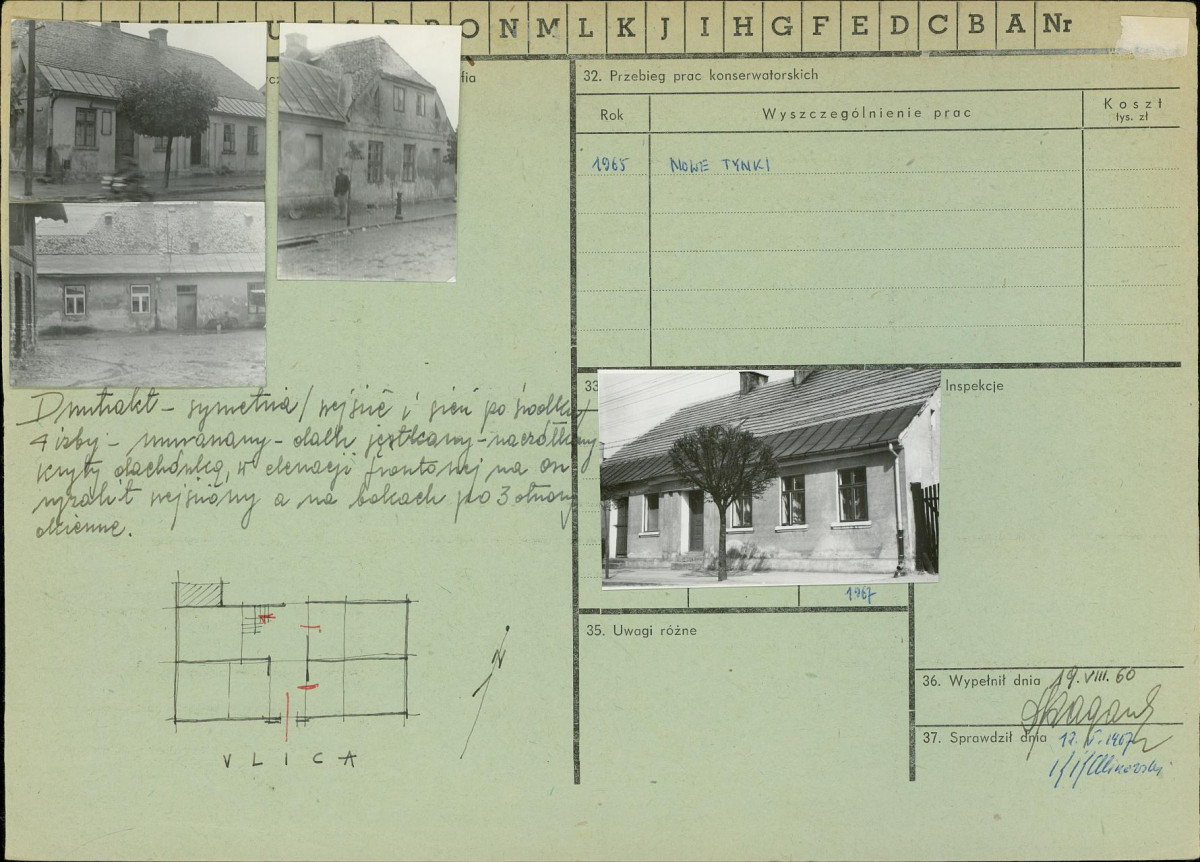 U T S R P O N M L K J I H G F E D C B A Nr
fia
32. Przebieg prac konserwatorskich
Rok
Wyszczególnienie prac
Koszt
tys. zł
1965 NOWE TYNKI
Dwutrakt – symetria / wejście i sień po środku /
4 izby – murowany – dach jętkowy – naczółkowy
kryty dachówką, w elewacji frontowej na osi
a na bokach po 3 otwory
okienne.
33
Inspekcje
1967
35. Uwagi różne
N
VLICA
36. Wypełnił dnia 19.VIII.60
37. Sprawdził dnia 12.V.1967